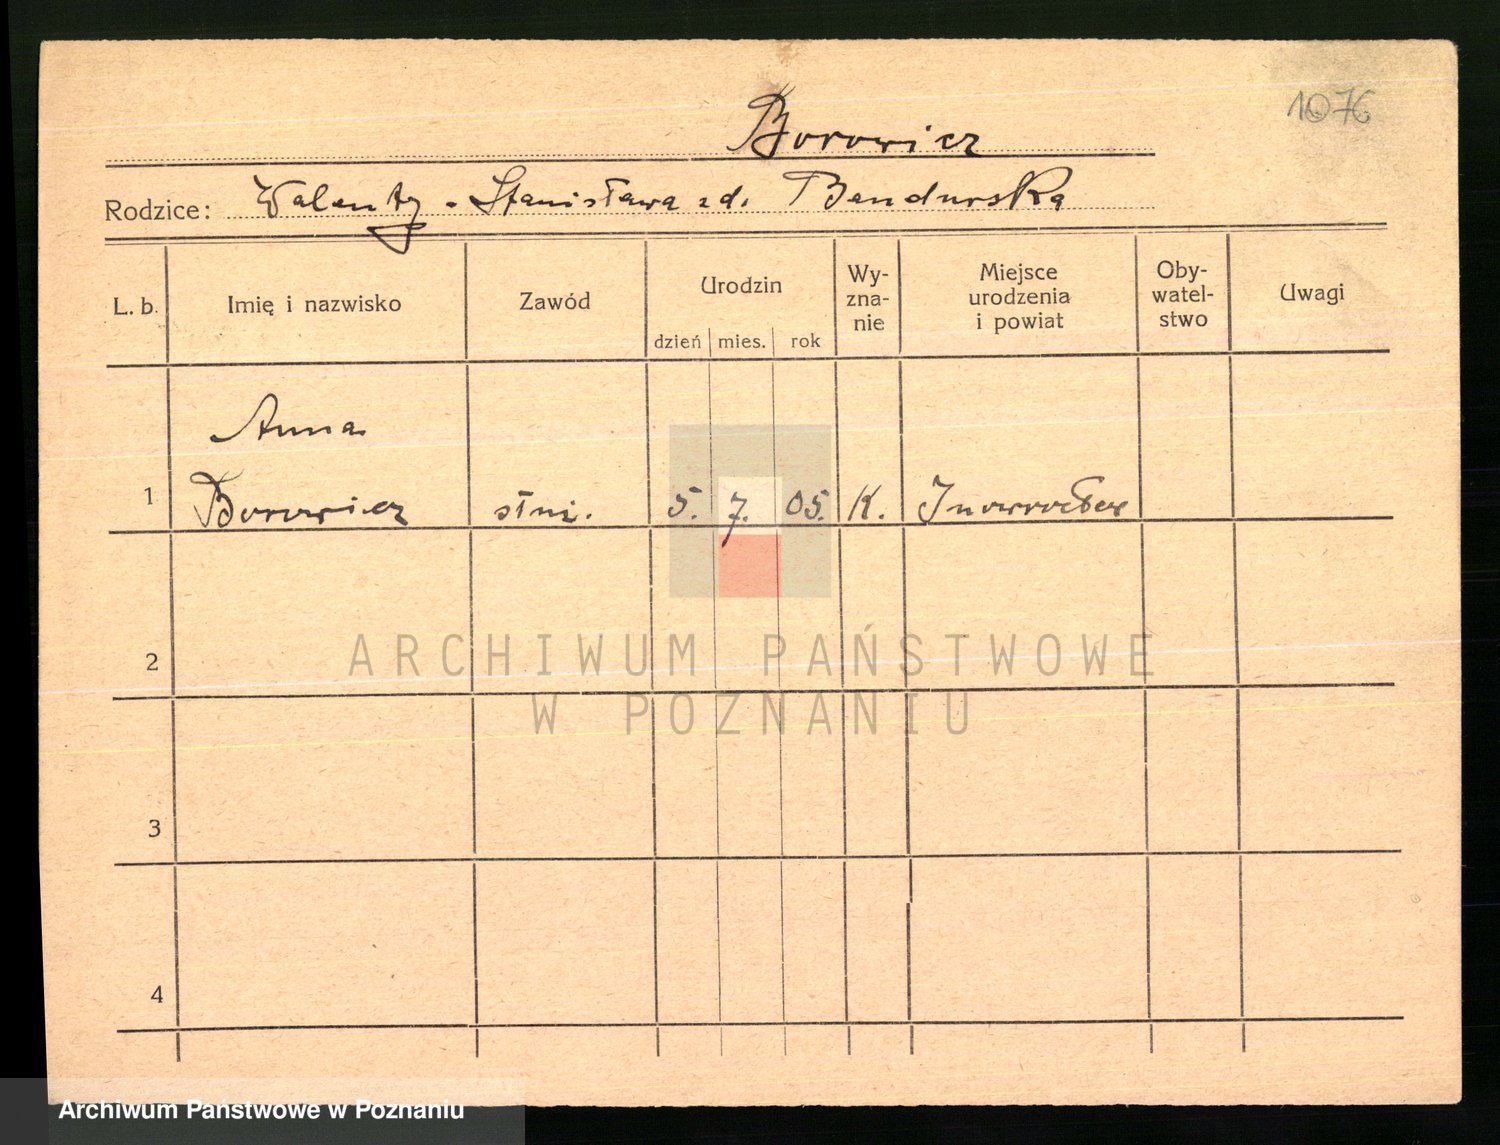 1076
Borowicz
Rodzice: Walenty - Stanisława zd. Bendurska
L. b. Imię i nazwisko Zawód Urodzin Wy-zna-nie Miejsce urodzenia i powiat Oby-watel-stwo Uwagi
dzień mies. rok
Anna
1 Borowicz służ. 5. 7. 05. K. Inowrocław
2
ARCHIWUM PAŃSTWOWE
W POZNANIU
3
4
Archiwum Państwowe w Poznaniu